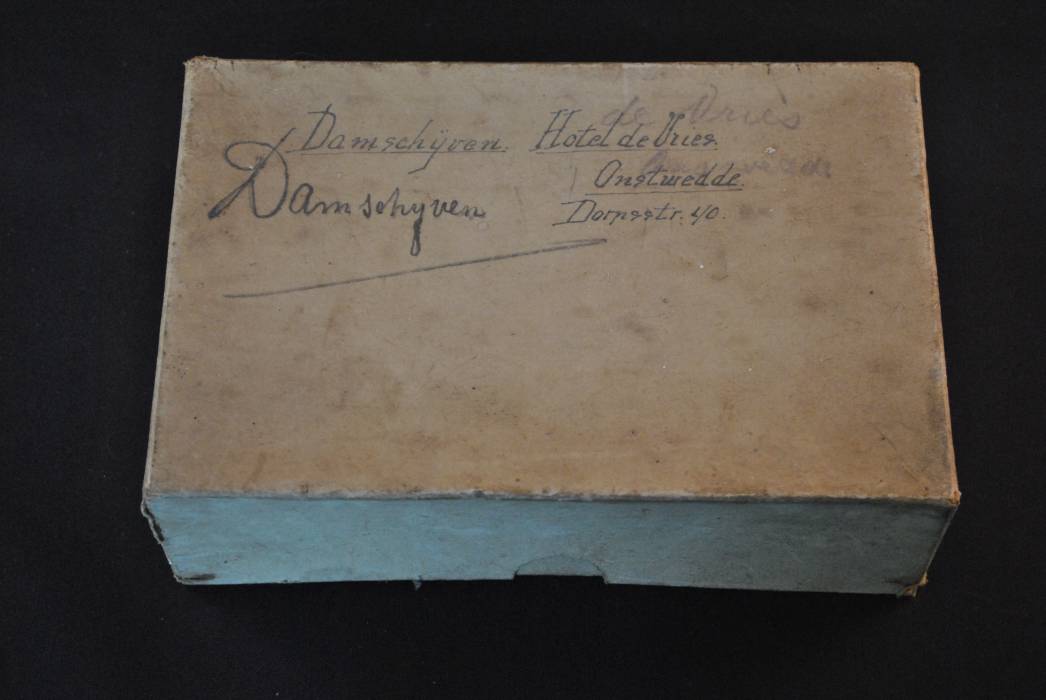 de Vries
Damschijven. Hotel de Vries.
Onstwedde.
Damschijven
Dorpsstr. 40.